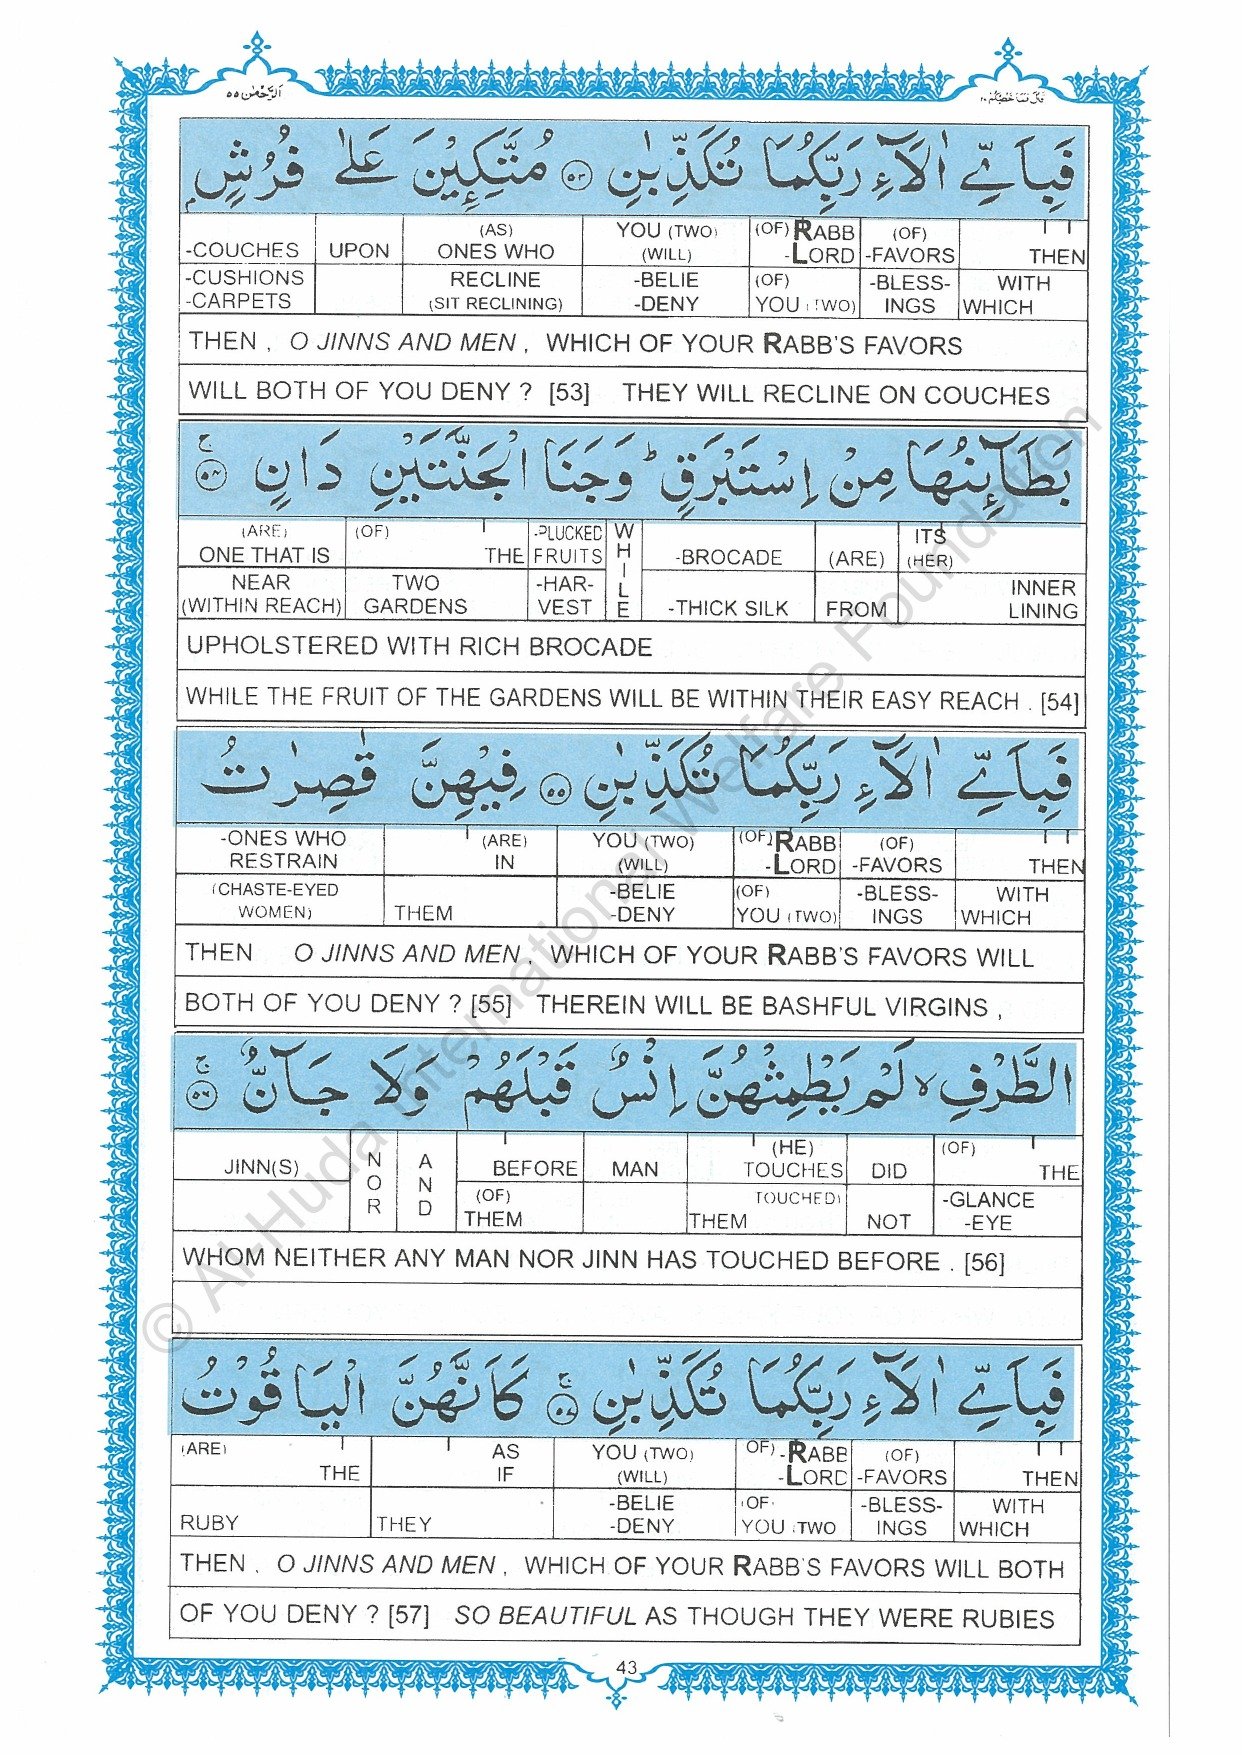 اَلرَّحْمٰن ٥٥
فَبِاَيِّ اٰلَآءِ رَبِّكُمَا تُكَذِّبٰنِ ٥٣ مُتَّكِـِٕيْنَ عَلٰى فُرُشٍۭ
-COUCHES UPON (AS) ONES WHO YOU (TWO) (WILL) (OF) RABB -LORD (OF) -FAVORS THEN
-CUSHIONS -CARPETS RECLINE (SIT RECLINING) -BELIE -DENY (OF) YOU (TWO) -BLESS-INGS WITH WHICH
THEN , O JINNS AND MEN , WHICH OF YOUR RABB'S FAVORS
WILL BOTH OF YOU DENY ? [53] THEY WILL RECLINE ON COUCHES
بَطَآئِنُهَا مِنْ اِسْتَبْرَقٍ ؕ وَجَنَا الْجَنَّتَيْنِ دَانٍ ۚ ٥٤
(ARE) ONE THAT IS (OF) THE -PLUCKED FRUITS WHILE -BROCADE (ARE) ITS (HER)
NEAR (WITHIN REACH) TWO GARDENS -HAR-VEST -THICK SILK FROM INNER LINING
UPHOLSTERED WITH RICH BROCADE
WHILE THE FRUIT OF THE GARDENS WILL BE WITHIN THEIR EASY REACH . [54]
فَبِاَيِّ اٰلَآءِ رَبِّكُمَا تُكَذِّبٰنِ ٥٥ فِيْهِنَّ قٰصِرٰتُ
-ONES WHO RESTRAIN (ARE) IN YOU (TWO) (WILL) (OF) RABB -LORD (OF) -FAVORS THEN
(CHASTE-EYED WOMEN) THEM -BELIE -DENY (OF) YOU (TWO) -BLESS-INGS WITH WHICH
THEN O JINNS AND MEN , WHICH OF YOUR RABB'S FAVORS WILL
BOTH OF YOU DENY ? [55] THEREIN WILL BE BASHFUL VIRGINS ,
الطَّرْفِ ۙ لَمْ يَطْمِثْهُنَّ اِنْسٌ قَبْلَهُمْ وَلَا جَآنٌّ ۚ ٥٦
JINN(S) NOR AND BEFORE MAN (HE) TOUCHES DID (OF) THE
(OF) THEM TOUCHED) THEM NOT -GLANCE -EYE
WHOM NEITHER ANY MAN NOR JINN HAS TOUCHED BEFORE . [56]
فَبِاَيِّ اٰلَآءِ رَبِّكُمَا تُكَذِّبٰنِ ۚ ٥٧ كَاَنَّهُنَّ الْيَاقُوْتُ
(ARE) THE AS IF YOU (TWO) (WILL) OF) -RABB -LORD (OF) -FAVORS THEN
RUBY THEY -BELIE -DENY (OF) YOU (TWO -BLESS-INGS WITH WHICH
THEN , O JINNS AND MEN , WHICH OF YOUR RABB'S FAVORS WILL BOTH
OF YOU DENY ? [57] SO BEAUTIFUL AS THOUGH THEY WERE RUBIES
43
© Al-Huda International Welfare Foundation